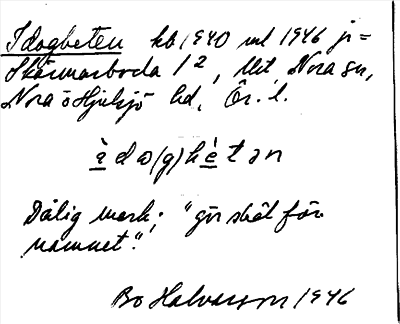 Idogbeten kb 1940 rul 1946 ji=
Skärmarboda 1², Utl, Nora sn,
Nora o Hjulsjö hd, Ör. l.
i̱̇do(g)hė̱tən
Dålig mark; "gör skäl för
namnet".
Bo Halvarsson 1946